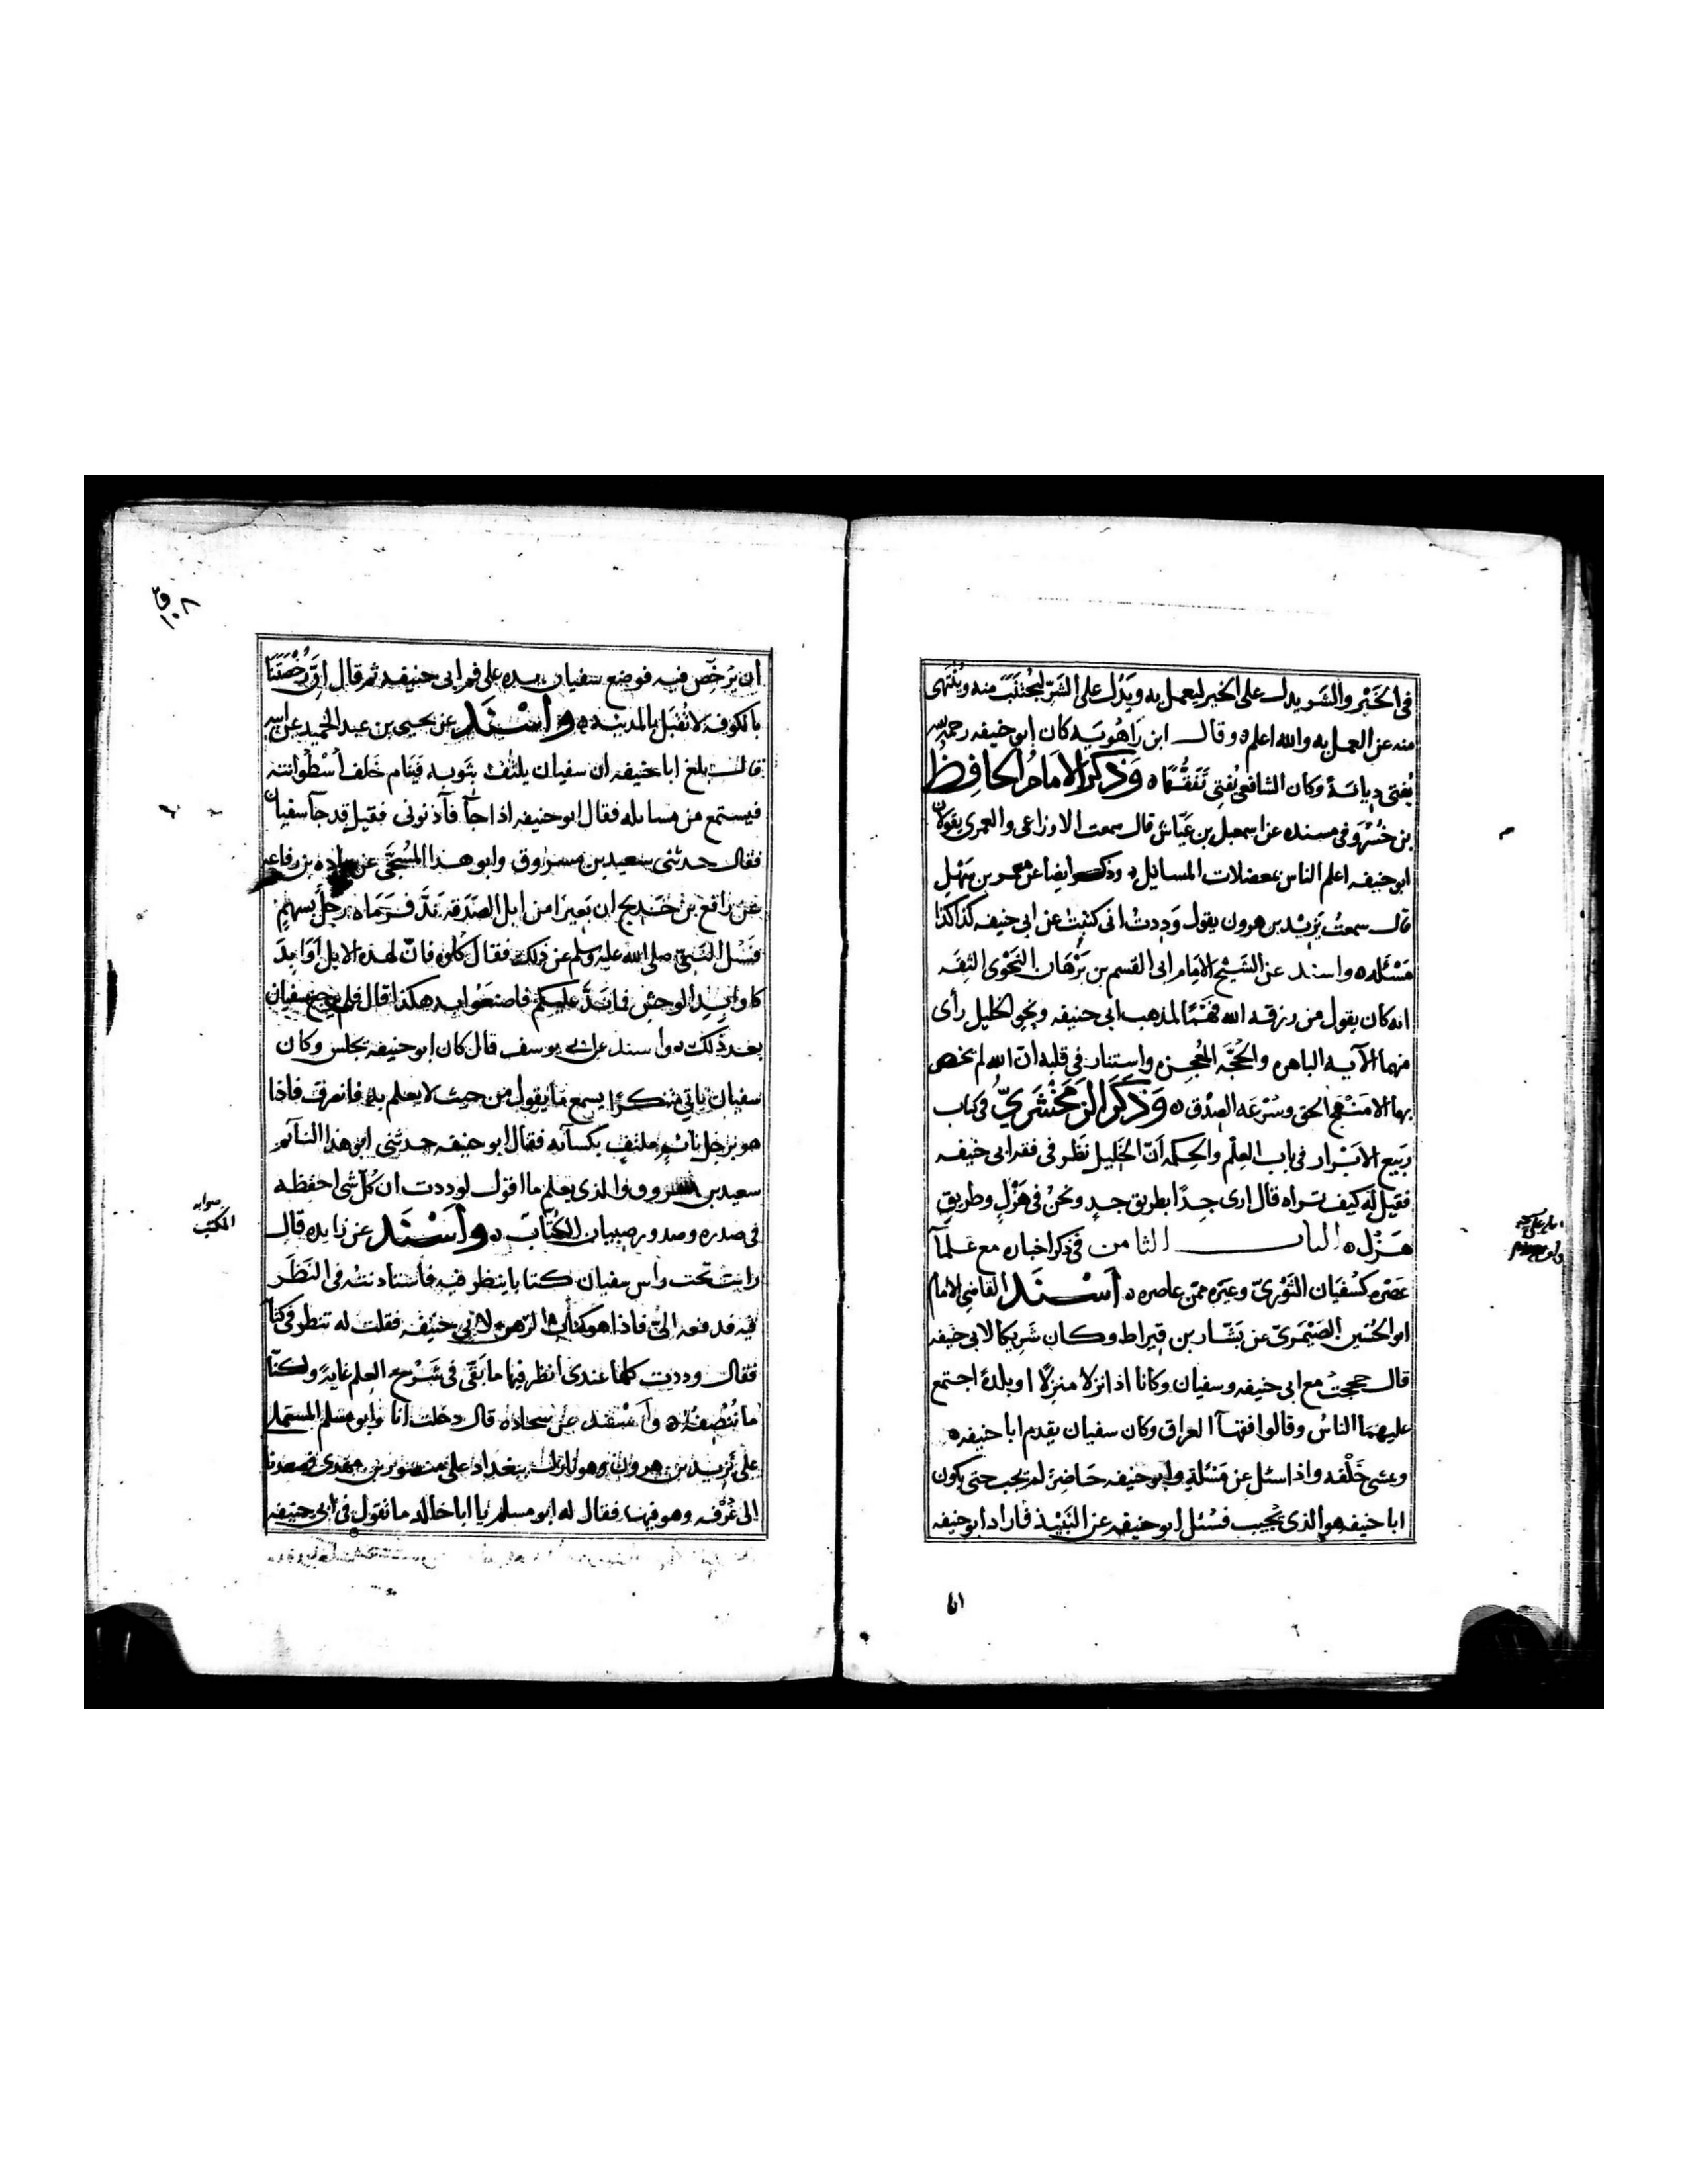 في الخَيْر والشر يدل على الخير ليعمل به ويَدُل على الشرّ ليُجْتَنَبَ منه ويُنْتَهى
منه عن العمل به والله اعلم ه وقال ابن رَاهُويه كان ابو حنيفه رحمه الله
يُفتى ديانةً وكان الشافعي يُفتِى تَفَقُّهًا ه وَذكرَ الامامُ الحافِظُ
بن خُسْرَو في مسنده عن اسمعيل بن عَيّاش قال سمعت الاوزاعي والعمرى يقولان
ابو حنيفه اعلم الناس بمعضلات المسايل ه وذكر ايضا عن بن سَهْلٍ
قال سمعتُ يَزِيْد بن هرون يقول وَدِدتُ انى كتبت عن ابى حنيفه كذا كذا
مَسْئله ه واسند عن الشيخ الامام ابى القسم بن بَرْهَان النحْوى الثِقَه
انه كان يقول من رزقه الله فَهْمًا لمذهب ابى حنيفه ونحو الخليل رأى
منهما الآيه الباهره والحُجّه المُعجِزه واستنار في قلبه انّ الله لم يخص
بهما الا مَنْهَج الحق وشرْعَه الصِدْق ه وَذَكَرَ الزمَخْشَرِيّ في كتاب
ربيع الابرار في باب العِلْم والحِكمه انّ الخليل نَظَر في فقه ابى حنيفه
فقيل له كيف تراه قال ارى جِدًا بطريق جدٍ ونحنُ في هَزْلٍ وطريقِ
هَزْل ه الباب الثامن في ذكر اخباره مع علمآ
عَصْره كسُفيَان الثوْرىّ وغيره ممّن عاصره ه اسْنَد القاضى الامام
ابو الحُسَين الصَيْمَرىّ عن بَشّار بن قيراط وكان شَرِيكا لابى حنيفه
قال حججتُ مع ابى حنيفه وسفيان وكانا اذا نزلا منزِلًا او بلدةً اجتمع
عليهما الناسُ وقالوا فقهآ العراق وكان سفيان يقدم ابا حنيفه ه
ويمشى خَلْفه واذا سئل عن مَسْئلةٍ وابو حنيفه حَاضِرٌ لم يجب حتى يكون
ابا حنيفه هو الذى يُجيب فسُئل ابو حنيفه عن النَبِيْذ فاراد ابو حنيفه
ان
ان يُرَخّص فيه فوضع سفيان يده على فم ابى حنيفه ثم قال انّ رُخْصَتَنَا
بالكوفه لا تُقبَل بالمدينه ه واسْنَد عن يحيى بن عبد الحميد عن ابيه
قال بلغ ابا حنيفه ان سفيان يلتفّ بثوبه فيَنام خَلف اسْطُوانته
فيستمع من مسايله فقال ابو حنيفه اذا جآ فآذنونى فقيل قد جآ سفيان
فقال حدثنى سعيد بن مسروق وابو هذا المُسَجَّى عن عبايه بن رفاعه
عن رَافع بن خَديج ان بَعِيرًا من ابل الصَدَقه نَدَّ فَرَمَاه رجلٌ بسهمٍ
فسُئل النبيّ صلى الله عليه وسلم عن ذلك فقال كلوه فانّ لهذه الابل اوابِدَ
كاوابِد الوحش فما نَدَّ عليكم فاصنعُوا به هكذا قال فلم يرجع سفيان
بَعد ذلك ه واسند عن ابى يوسف قال كان ابو حنيفه يجلس وكان
سفيان ياتى متنكرًا يسمع ما يقول من حيث لا يعلم به فانصرف فاذا
هو برجل نائمٍ ملتفٍ بكسآئه فقال ابو حنيفه حدثنى ابو هذا النآئم
سعيد بن مسروق والذى يعلم ما اقول لوددت ان كُلّ شى احفظه
في صدره وصدور صبيان الكُتّاب ه واسْنَد عن زايده قال
رايت تحت راس سفيان كتابا ينظر فيه فاستاذنته في النَظَر
فيه فدفعه الىّ فاذا هو كتاب الرهن لابى حنيفه فقلت له تنظر في كتبه
فقال وددت كلها عندى انظر فيها ما بَقى في شَرْح العِلم غايةٌ ولكنّا
ما نُنْصِفُه ه واسْنَد عن سجاده قال دخلت انا وابو مسلم المستملى
على يَزيد بن هرون وهو نازل ببغداد على منصور بن مهدى فصعدنا
الى غرْفه وهو فيها فقال له ابو مسلم يا ابا خالد ما تقول في ابى حنيفه
صوابه
المكتب